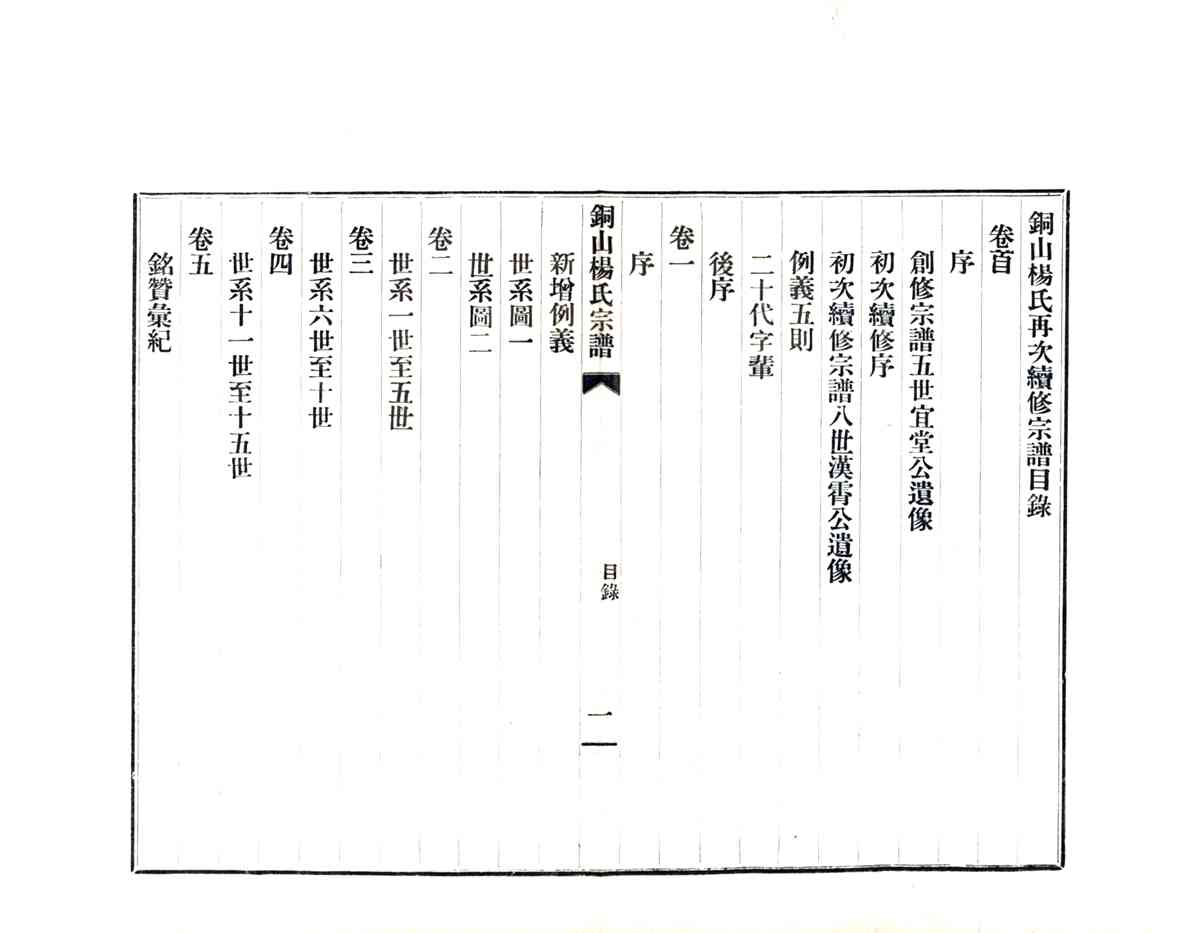 銅山楊氏再次續修宗譜目錄
卷首
序
創修宗譜五世宜堂公遺像
初次續修序
初次續修宗譜八世漢霄公遺像
例義五則
二十代字輩
後序
卷一
序
銅山楊氏宗譜
目錄
一
新增例義
世系圖一
世系圖二
卷二
世系一世至五世
卷三
世系六世至十世
卷四
世系十一世至十五世
卷五
銘贊彙紀